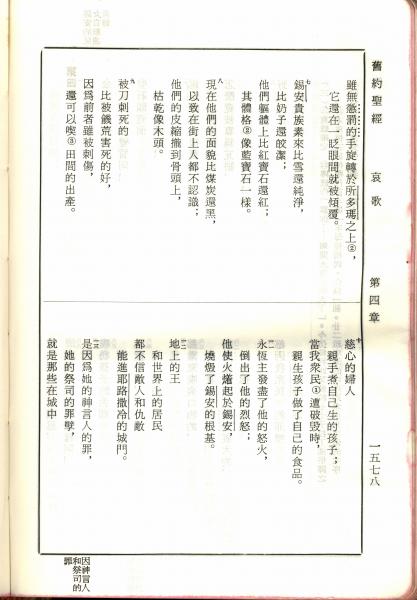 舊約聖經　哀歌　第四章　一五七八
雖無懲罰的手旋轉於所多瑪之上②，
它還在一眨眼間就被傾覆。
七錫安貴族素來比雪還純淨，
比奶子還皎潔；
他們軀體上比紅寶石還紅；
其體格②像藍寶石一樣。
八現在他們的面貌比煤炭還黑，
以致在街上人都不認識；
他們的皮縮攏到骨頭上，
枯乾像木頭。
九被刀刺死的
比被饑荒害死的好，
因爲前者雖被刺傷，
還可以喫③田間的出產。
十慈心的婦人
親手煮自己生的孩子；
當我衆民①遭破毀時，
親生孩子做了自己的食品。
十一永恆主發盡了他的怒火，
倒出了他的烈怒；
他使火熖起於錫安，
燒燬了錫安的根基。
十二地上的王
和世界上的居民
都不信敵人和仇敵
能進耶路撒冷的城門。
十三是因爲她的神言人的罪，
她的祭司的罪孽，
就是那些在城中
因神言人
和祭司的
罪